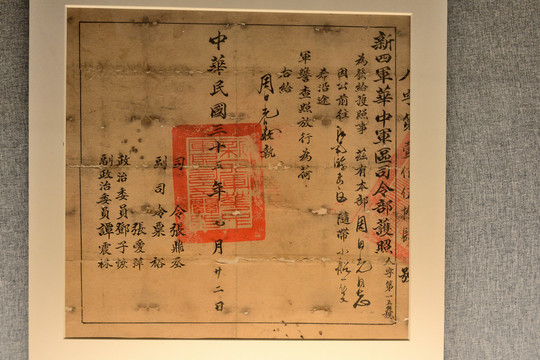 新四軍華中軍區司令部護照
人字第一五號
為發給護照事茲有本部周日元同志
因公前往 隨帶小船一隻
希沿途
軍警查照放行為荷
右給
周日元收執
中華民國三十五年七月廿二日
司令張鼎丞
副司令粟裕
張愛萍
政治委員鄧子恢
副政治委員譚震林